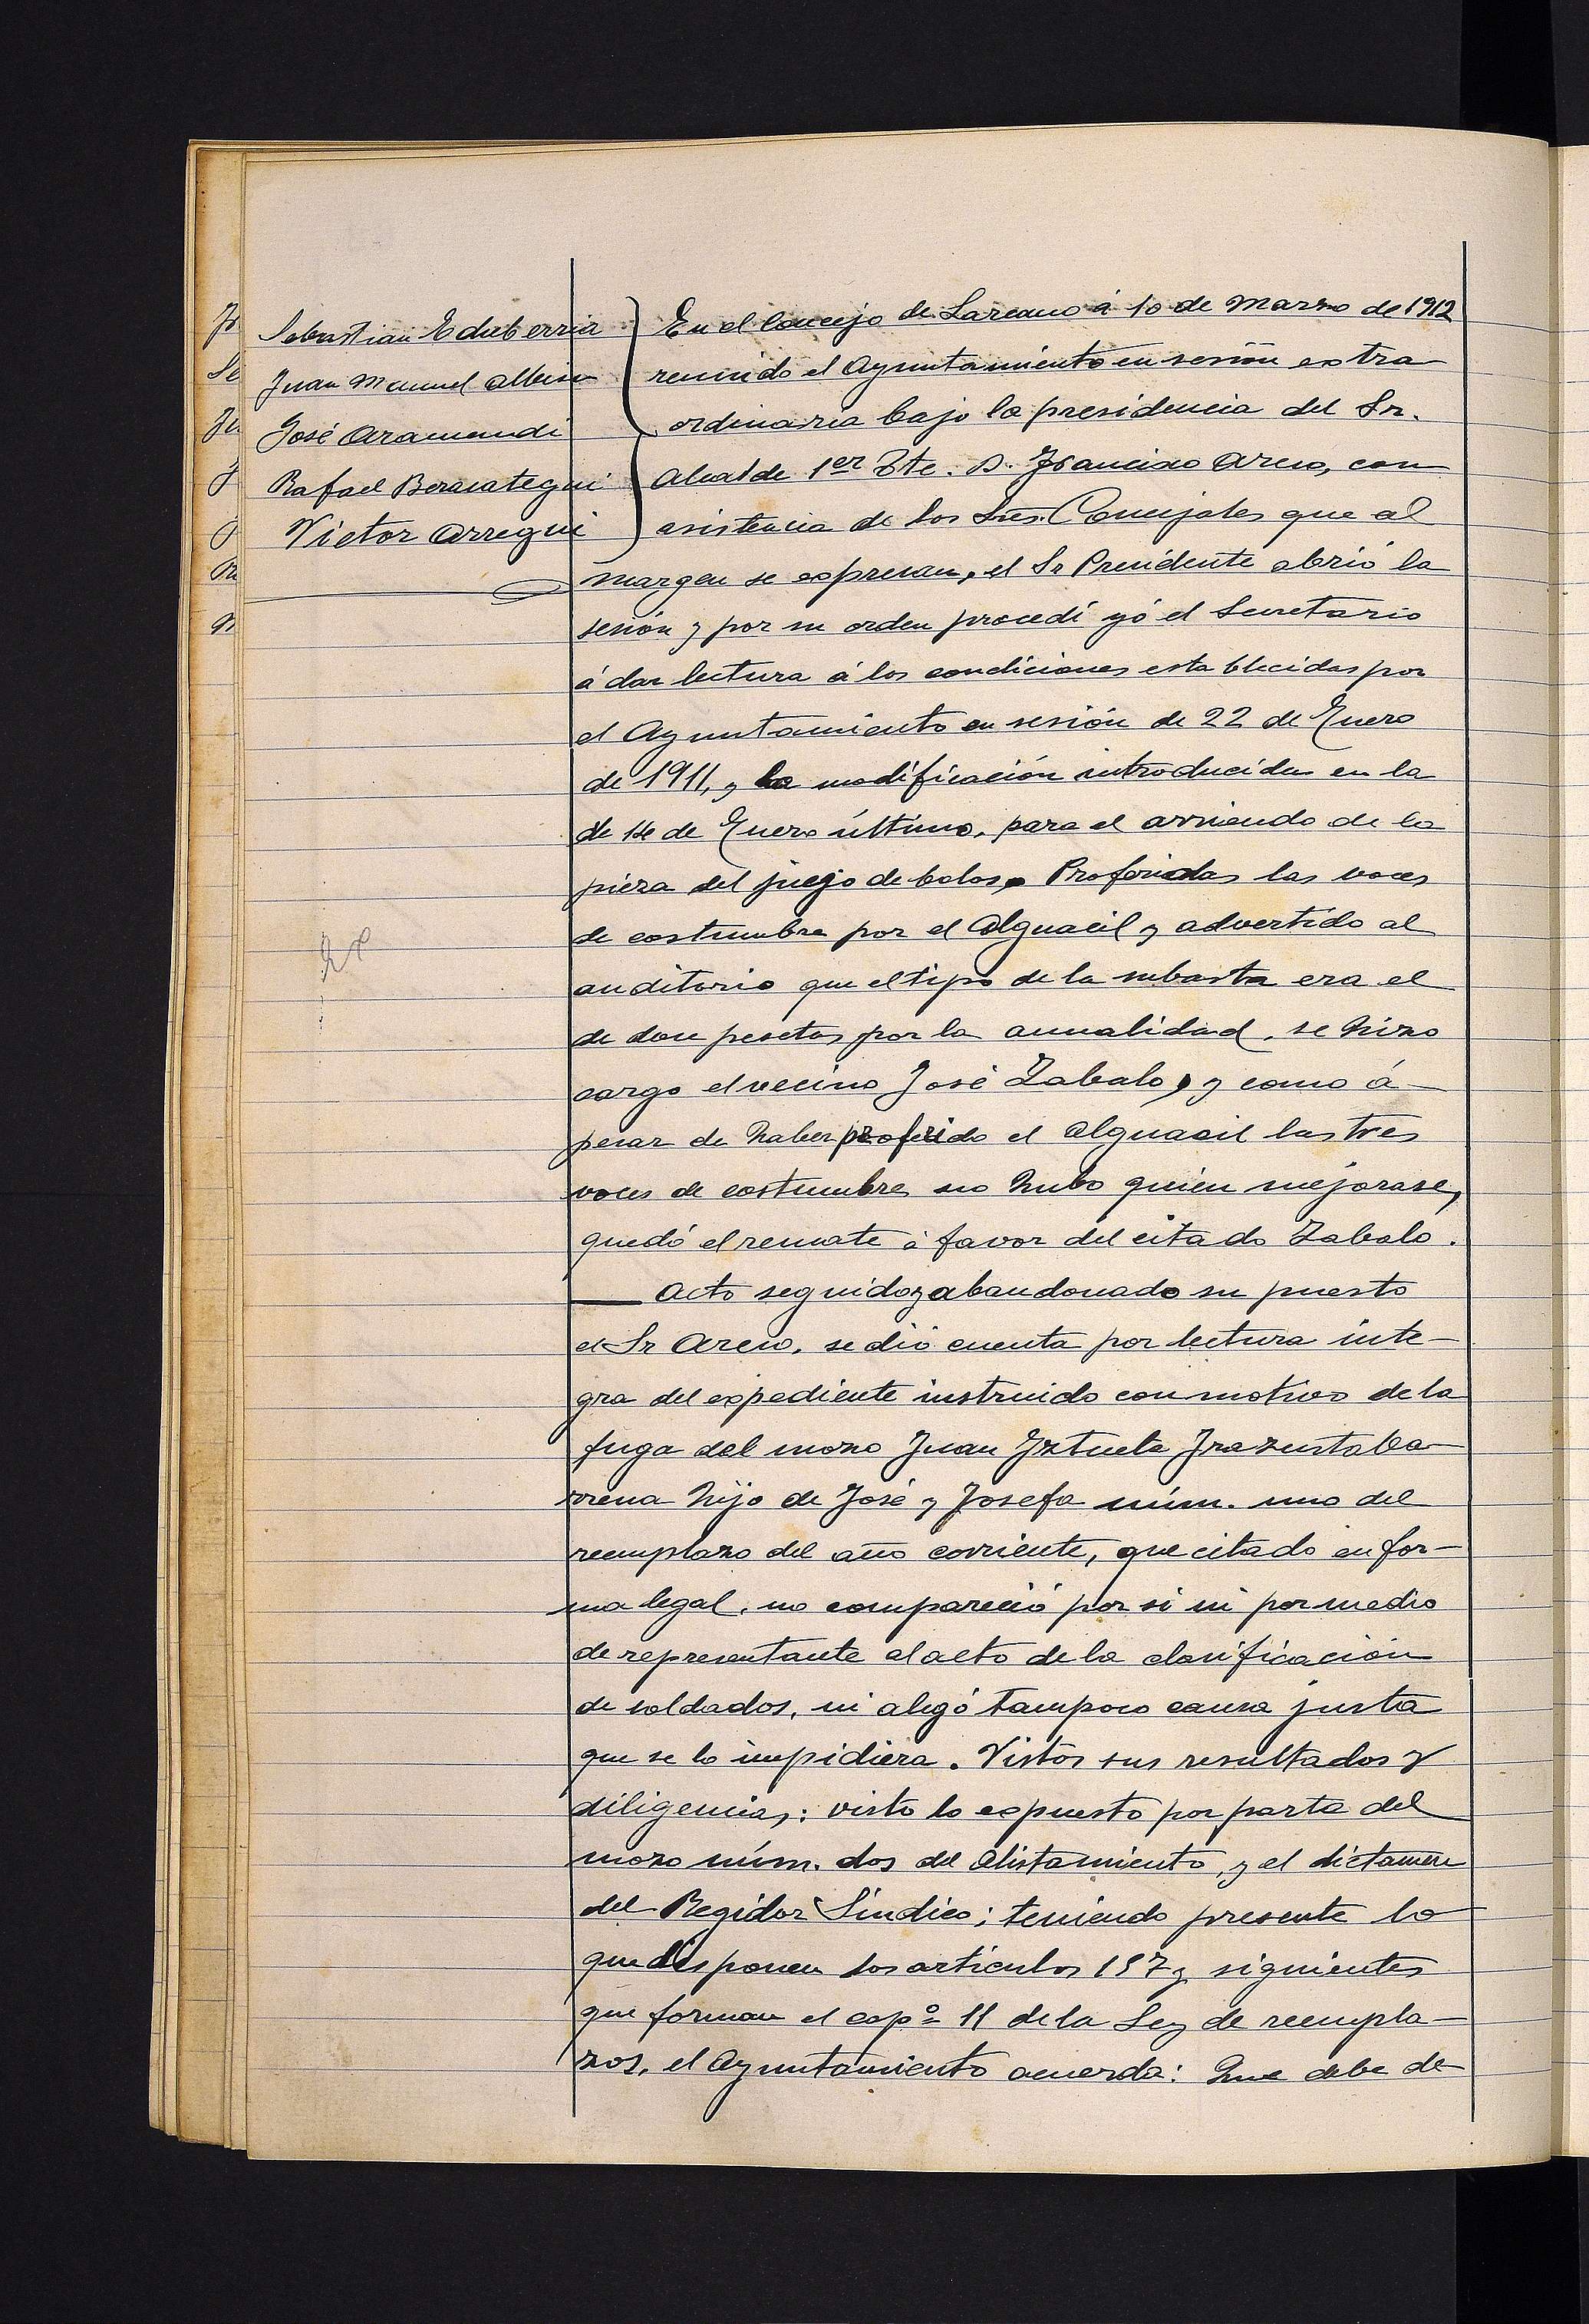 Sebastian Echeberria
Juan Manuel Albisu
José Aramendi
Rafael Berasategui
Victor Arregui
En el Concejo de Lazcano á 10 de Marzo de 1912
reunido el Ayuntamiento en sesión extra
ordinaria bajo la presidencia del Sr.
Alcalde 1er Tte. D. Francisco Areso, con
asistencia de los Sres. Concejales que al
margen se expresan, el Sr Presidente abrió la
sesión y por su orden procedí yó el Secretario
á dar lectura á las condiciones establecidas por
el Ayuntamiento en sesión de 22 de Enero
de 1911, y la modificación introducida en la
de 14 de Enero último, para el arriendo de la
pieza del juego de bolos. Proferidas las voces
de costumbre por el Alguacil y advertido al
auditorio que el tipo de la subasta era el
de doce pesetas por la anualidad, se hizo
cargo el vecino José Zabalo, y como á
pesar de haber proferido el Alguacil las tres
voces de costumbre no hubo quien mejorase,
quedó el remate á favor del citado Zabalo.
Acto seguido y abandonado su puesto
el Sr Areso, se dió cuenta por lectura inte-
gra del expediente instruido con motivo de la
fuga del mozo Juan Iztueta Irazustaba-
rrena hijo de José y Josefa núm. uno del
reemplazo del año corriente, que citado en for-
ma legal, no compareció por si ni por medio
de representante al acto de la clasificación
de soldados, ni alegó tampoco causa justa
que se lo impidiera. Vistos sus resultados y
diligencias: visto lo expuesto por parte del
mozo núm. dos del Alistamiento, y el dictamen
del Regidor Síndico; teniendo presente lo
que disponen los artículos 157 y siguientes
que forman el capº 11 de la Ley de reempla-
zos, el Ayuntamiento acuerda: Que debe de-